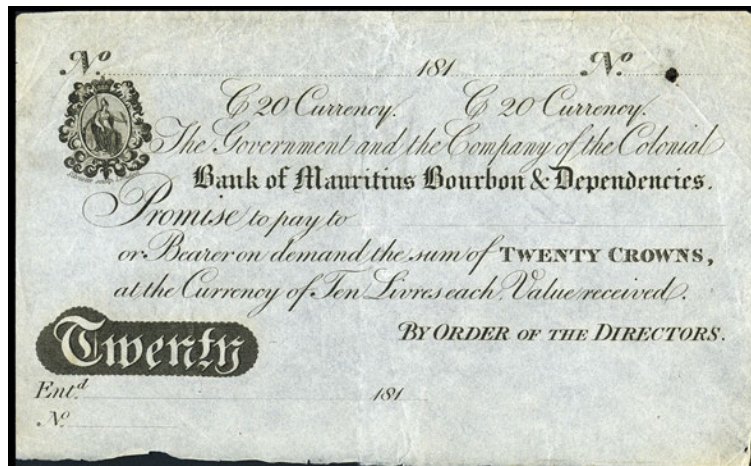 No. 181 No.
₢ 20 Currency. ₢ 20 Currency.
The Government and the Company of the Colonial
Bank of Mauritius Bourbon & Dependencies.
Promise to pay to
or Bearer on demand the sum of TWENTY CROWNS,
at the Currency of Ten Livres each Value received.
BY ORDER OF THE DIRECTORS.
Twenty
Ent.d 181
No.